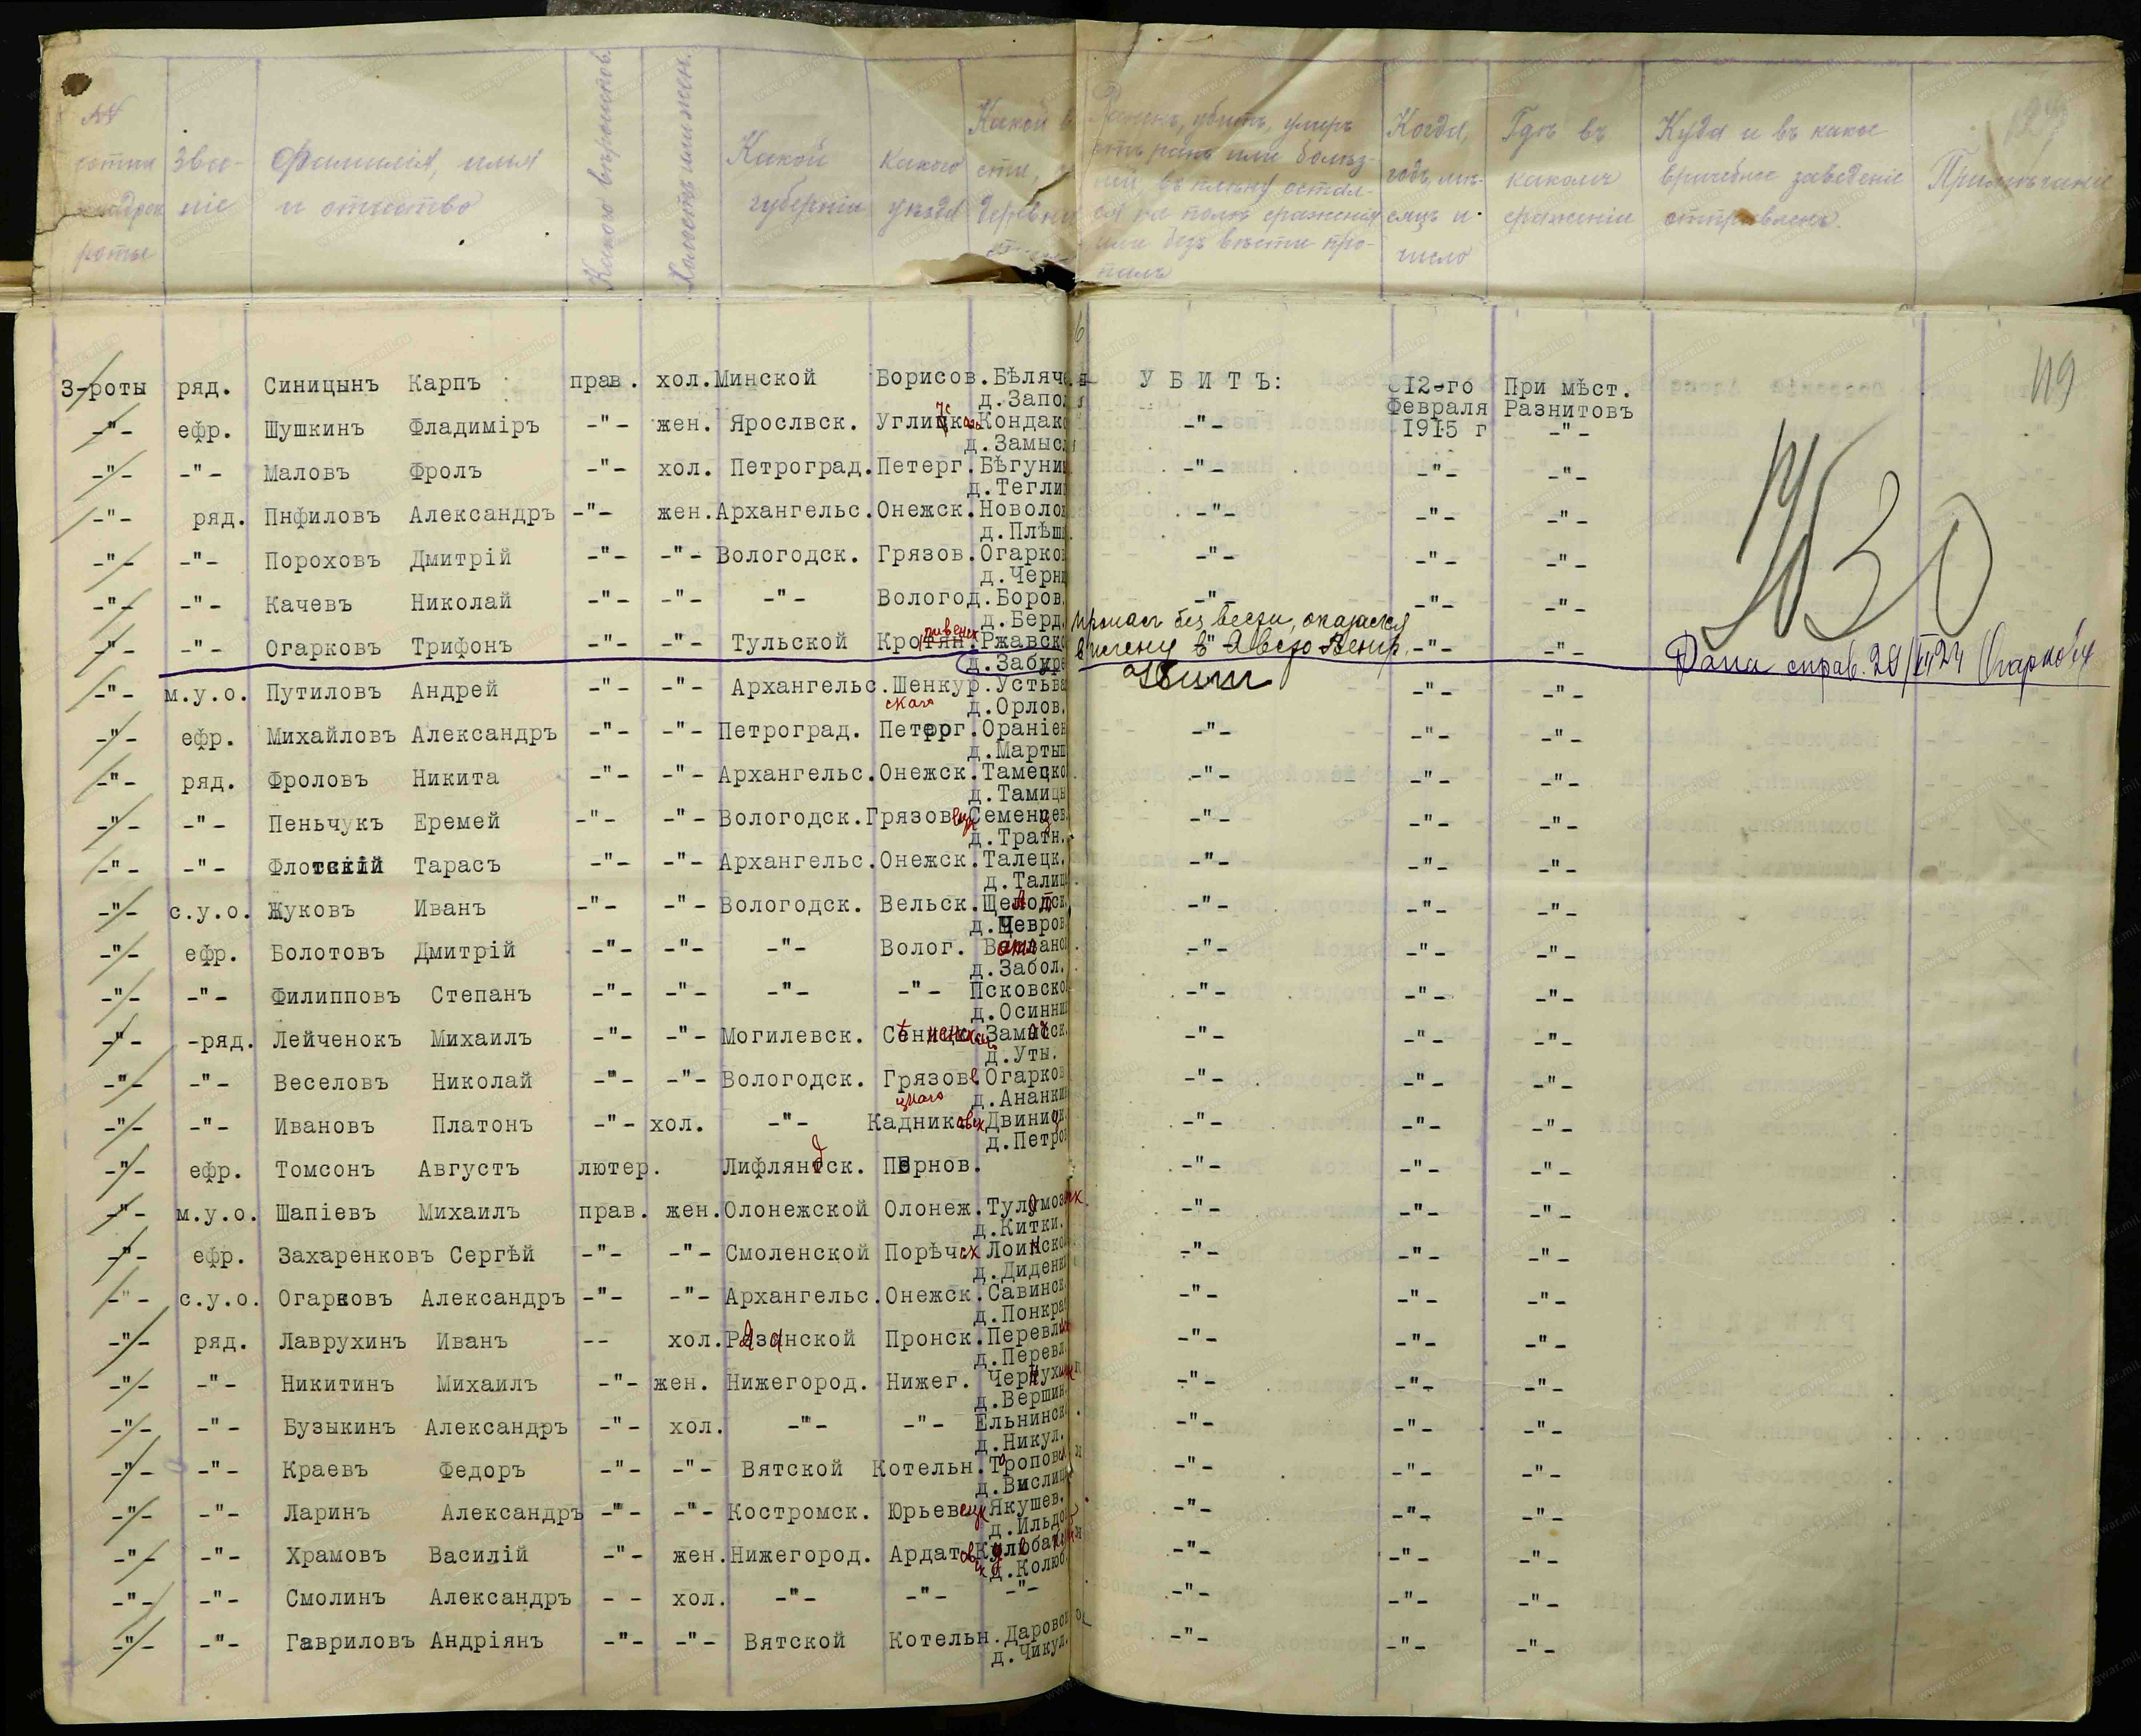 Звание
Фамилія, имя и отчество
Какого вѣроисповѣд.
Холостъ или жен.
Какой губерніи
Какого уѣзда
Какой
деревни
Раненъ, убитъ, умеръ
отъ ранъ или болѣз-
ней, въ плѣну, остал-
ся на полѣ сраженія
или безъ вѣсти про-
палъ
Когда, годъ, мѣ-
сяцъ и число
Гдѣ въ какомъ сраженіи
Куда и въ какое врачебное заведеніе отправленъ.
Примѣчаніе
119
3-роты ряд. Синицынъ Карпъ прав. хол. Минской Борисов. Бѣляче УБИТЪ: 12-го При мѣст.
д.Запол Февраля Разнитовъ
-"- ефр. Шушкинъ Фладиміръ -"- жен. Ярослвск. Углицк Кондако -"- 1915 г -"-
д.Замысл
-"- -"- Маловъ Фролъ -"- хол. Петроград. Петерг. Бѣгуни -"- -"- -"-
д.Тегли
-"- ряд. Пнфиловъ Александръ -"- жен. Архангельс. Онежск. Новоло -"- -"- -"-
д.Плѣш
-"- -"- Пороховъ Дмитрій -"- -"- Вологодск. Грязов. Огарков -"- -"- -"-
д.Черн
-"- -"- Качевъ Николай -"- -"- -"- Вологод. Боров. -"- -"- -"-
д.Берд. пропал без вести, оказался
-"- -"- Огарковъ Трифонъ -"- -"- Тульской Кро Ржавск в плену в Австро-Венгр. -"- -"- Дана справ.
д.Забыр Убит
-"- м.у.о. Путиловъ Андрей -"- -"- Архангельс. Шенкур. Устьва -"- -"-
скаго д.Орлов.
-"- ефр. Михайловъ Александръ -"- -"- Петроград. Петерг. Ораніен -"- -"- -"-
д.Марты
-"- ряд. Фроловъ Никита -"- -"- Архангельс. Онежск. Тамецко -"- -"- -"-
д.Тамицы
-"- -"- Пеньчукъ Еремей -"- -"- Вологодск. Грязов Семенцев -"- -"- -"-
д.Тратн.
-"- -"- Флотскій Тарасъ -"- -"- Архангельс. Онежск. Талецк. -"- -"- -"-
д.Талиц
-"- с.у.о. Жуковъ Иванъ -"- -"- Вологодск. Вельск. -"- -"- -"-
д.Шевров
-"- ефр. Болотовъ Дмитрій -"- -"- -"- Волог. -"- -"- -"-
д.Забол.
-"- -"- Филипповъ Степанъ -"- -"- -"- -"- Псковско -"- -"- -"-
д.Осинни
-"- -ряд. Лейченокъ Михаилъ -"- -"- Могилевск. -"- -"- -"-
д.Уты.
-"- -"- Веселовъ Николай -"- -"- Вологодск. Грязов Огарков -"- -"- -"-
цкаго д.Ананки
-"- -"- Ивановъ Платонъ -"- хол. -"- Кадников Двиниц -"- -"- -"-
д.Петро
-"- ефр. Томсонъ Августъ лютер. Лифляндск. Пернов. -"- -"- -"-
-"- м.у.о. Шапіевъ Михаилъ прав. жен. Олонежской Олонеж. Туломоз -"- -"- -"-
д.Китки.
-"- ефр. Захаренковъ Сергѣй -"- -"- Смоленской Порѣчск Лоинско -"- -"- -"-
д.Диденк
-"- с.у.о. Огарковъ Александръ -"- -"- Архангельс. Онежск. Савинск -"- -"- -"-
д.Понкра
-"- ряд. Лаврухинъ Иванъ -- хол. Рязанской Пронск. Перевл -"- -"- -"-
д.Перевл
-"- -"- Никитинъ Михаилъ -"- жен. Нижегород. Нижег. Чернух -"- -"- -"-
д.Вершин
-"- -"- Бузыкинъ Александръ -"- хол. -"- -"- Ельнинск -"- -"- -"-
д.Никул.
-"- -"- Краевъ Федоръ -"- -"- Вятской Котельн. Тороповск -"- -"- -"-
д.Вислиц
-"- -"- Ларинъ Александръ -"- -"- Костромск. Юрьевецк Якушев. -"- -"- -"-
д.Ильдо
-"- -"- Храмовъ Василій -"- жен. Нижегород. Ардатов -"- -"- -"-
д.Колюб
-"- -"- Смолинъ Александръ - - хол. -"- -"- -"- -"- -"- -"-
-"- -"- Гавриловъ Андріянъ -"- -"- Вятской Котельн. Даровск -"- -"- -"-
д.Чикул.